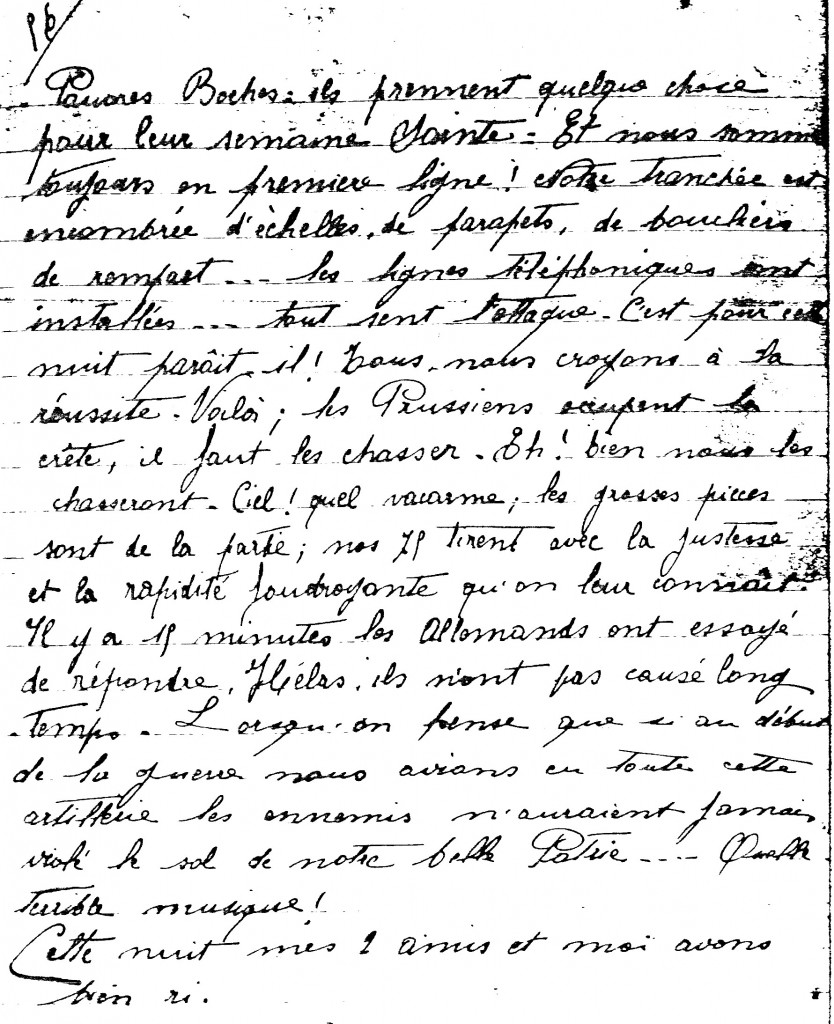 Pauvres Boches = ils prennent quelque chose
pour leur semaine Sainte = Et nous somme
toujours en première ligne ! Notre tranchée est
encombrée d'échelles, de parapets, de boucliers
de rempart --- les lignes téléphoniques sont
installées --- tout sent l'attaque - C'est pour cette
nuit paraît-il ! Tous, nous croyons à la
réussite - Voilà ; les Prussiens occupent la
crête, il faut les chasser - Eh ! bien nous les
chasseront - Ciel ! quel vacarme ; les grosses pièces
sont de la partie ; nos 75 tirent avec la justesse
et la rapidité foudroyante qu'on leur connaît.
Il y a 15 minutes les Allemands ont essayé
de répondre, Hélas, ils n'ont pas causé long
-temps - Lorsqu'on pense que si au début
de la guerre nous avions eu toute cette
artillerie les ennemis n'auraient jamais
violé le sol de notre belle Patrie --- Quelle
terrible musique !
Cette nuit mes 2 amis et moi avons
bien ri.